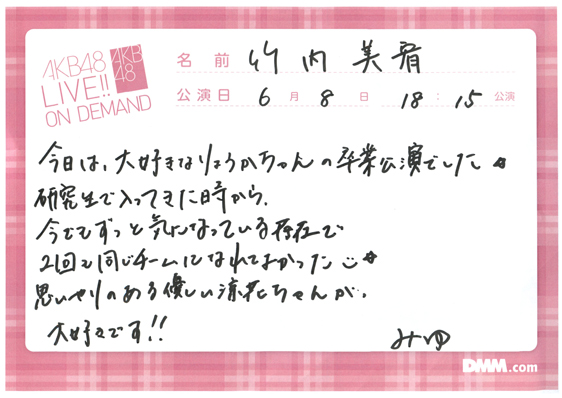 AKB48
LIVE!!
ON DEMAND
AKB
48
名前 竹内美宥
公演日 6月8日 18:15公演
今日は、大好きなりょうかちゃんの卒業公演でした
研究生で入ってきた時から、
今でもずっと気になっている存在で
2回も同じチームになれてよかった
思いやりのある優しい涼花ちゃんが、
大好きです!!
みゆ
DMM.com